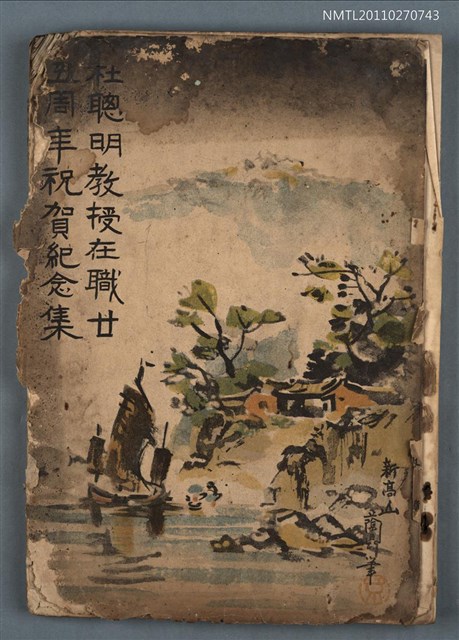 NMTL20110270743
杜聰明教授在職廿
五周年祝賀紀念集
新高山
筆